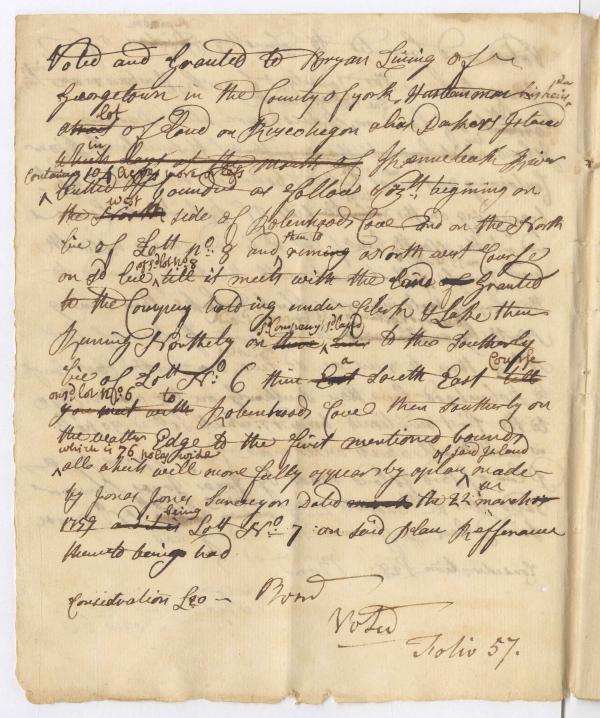 Voted and Granted to Bryan Lining of
Georgetown in the County of york, Husbandman his heirs &a
a tract lot of Land on Ruscohegon alias Parkers Island
which lays at the mouth of in Kennebeck River
Containing 104 Acres more or less
butted & bounded as Follows Vizt. begining on
the North west side of Robinhoods Cove and on the North
line of Lott No. 8 and then to runing a North west Course
on sd line of sd lot No 8 till it meets with the land of Granted
to the Company holding under Clark & Lake then
Running Northely on there line sd Company's Land to the Southerly
line of Lott No 6 then East a South East Course till
on sd lot No. 6
you meet with to Robinhoods Cove then Southerly on
the water Edge to the first mentioned bounds
which is 76 poles wide
all which will more fully appear by a plan of said Island made
by Jonas Jones Surveyor Dated march the 22 march
1759 and it is being Lott No 7 on said plan Refferance
thereto being had
Consideration &ca
Voted
Folio 57.